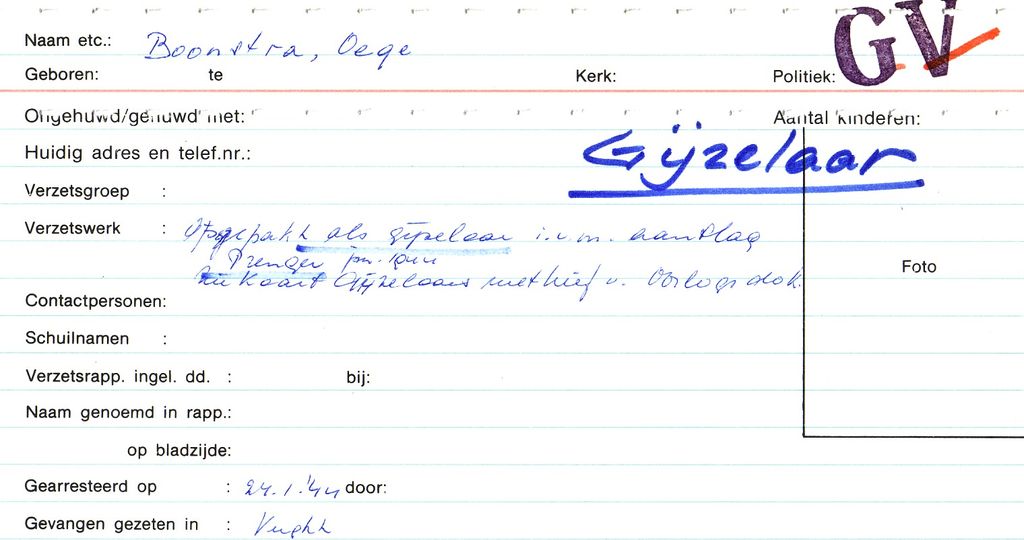 GV
Naam etc.: Boonstra, Oege
Geboren: te Kerk: Politiek:
Ongehuwd/gehuwd met: Aantal kinderen:
Gijzelaar
Huidig adres en telef.nr.:
Verzetsgroep :
Verzetswerk : Opgepakt als gijzelaar i.v.m. aanslag
Prenger jan.
Zie kaart Gijzelaars met brief v. Oorlogsdok.
Foto
Contactpersonen:
Schuilnamen :
Verzetsrapp. ingel. dd. : bij:
Naam genoemd in rapp.:
op bladzijde:
Gearresteerd op : 24.1.'44 door:
Gevangen gezeten in : Vught